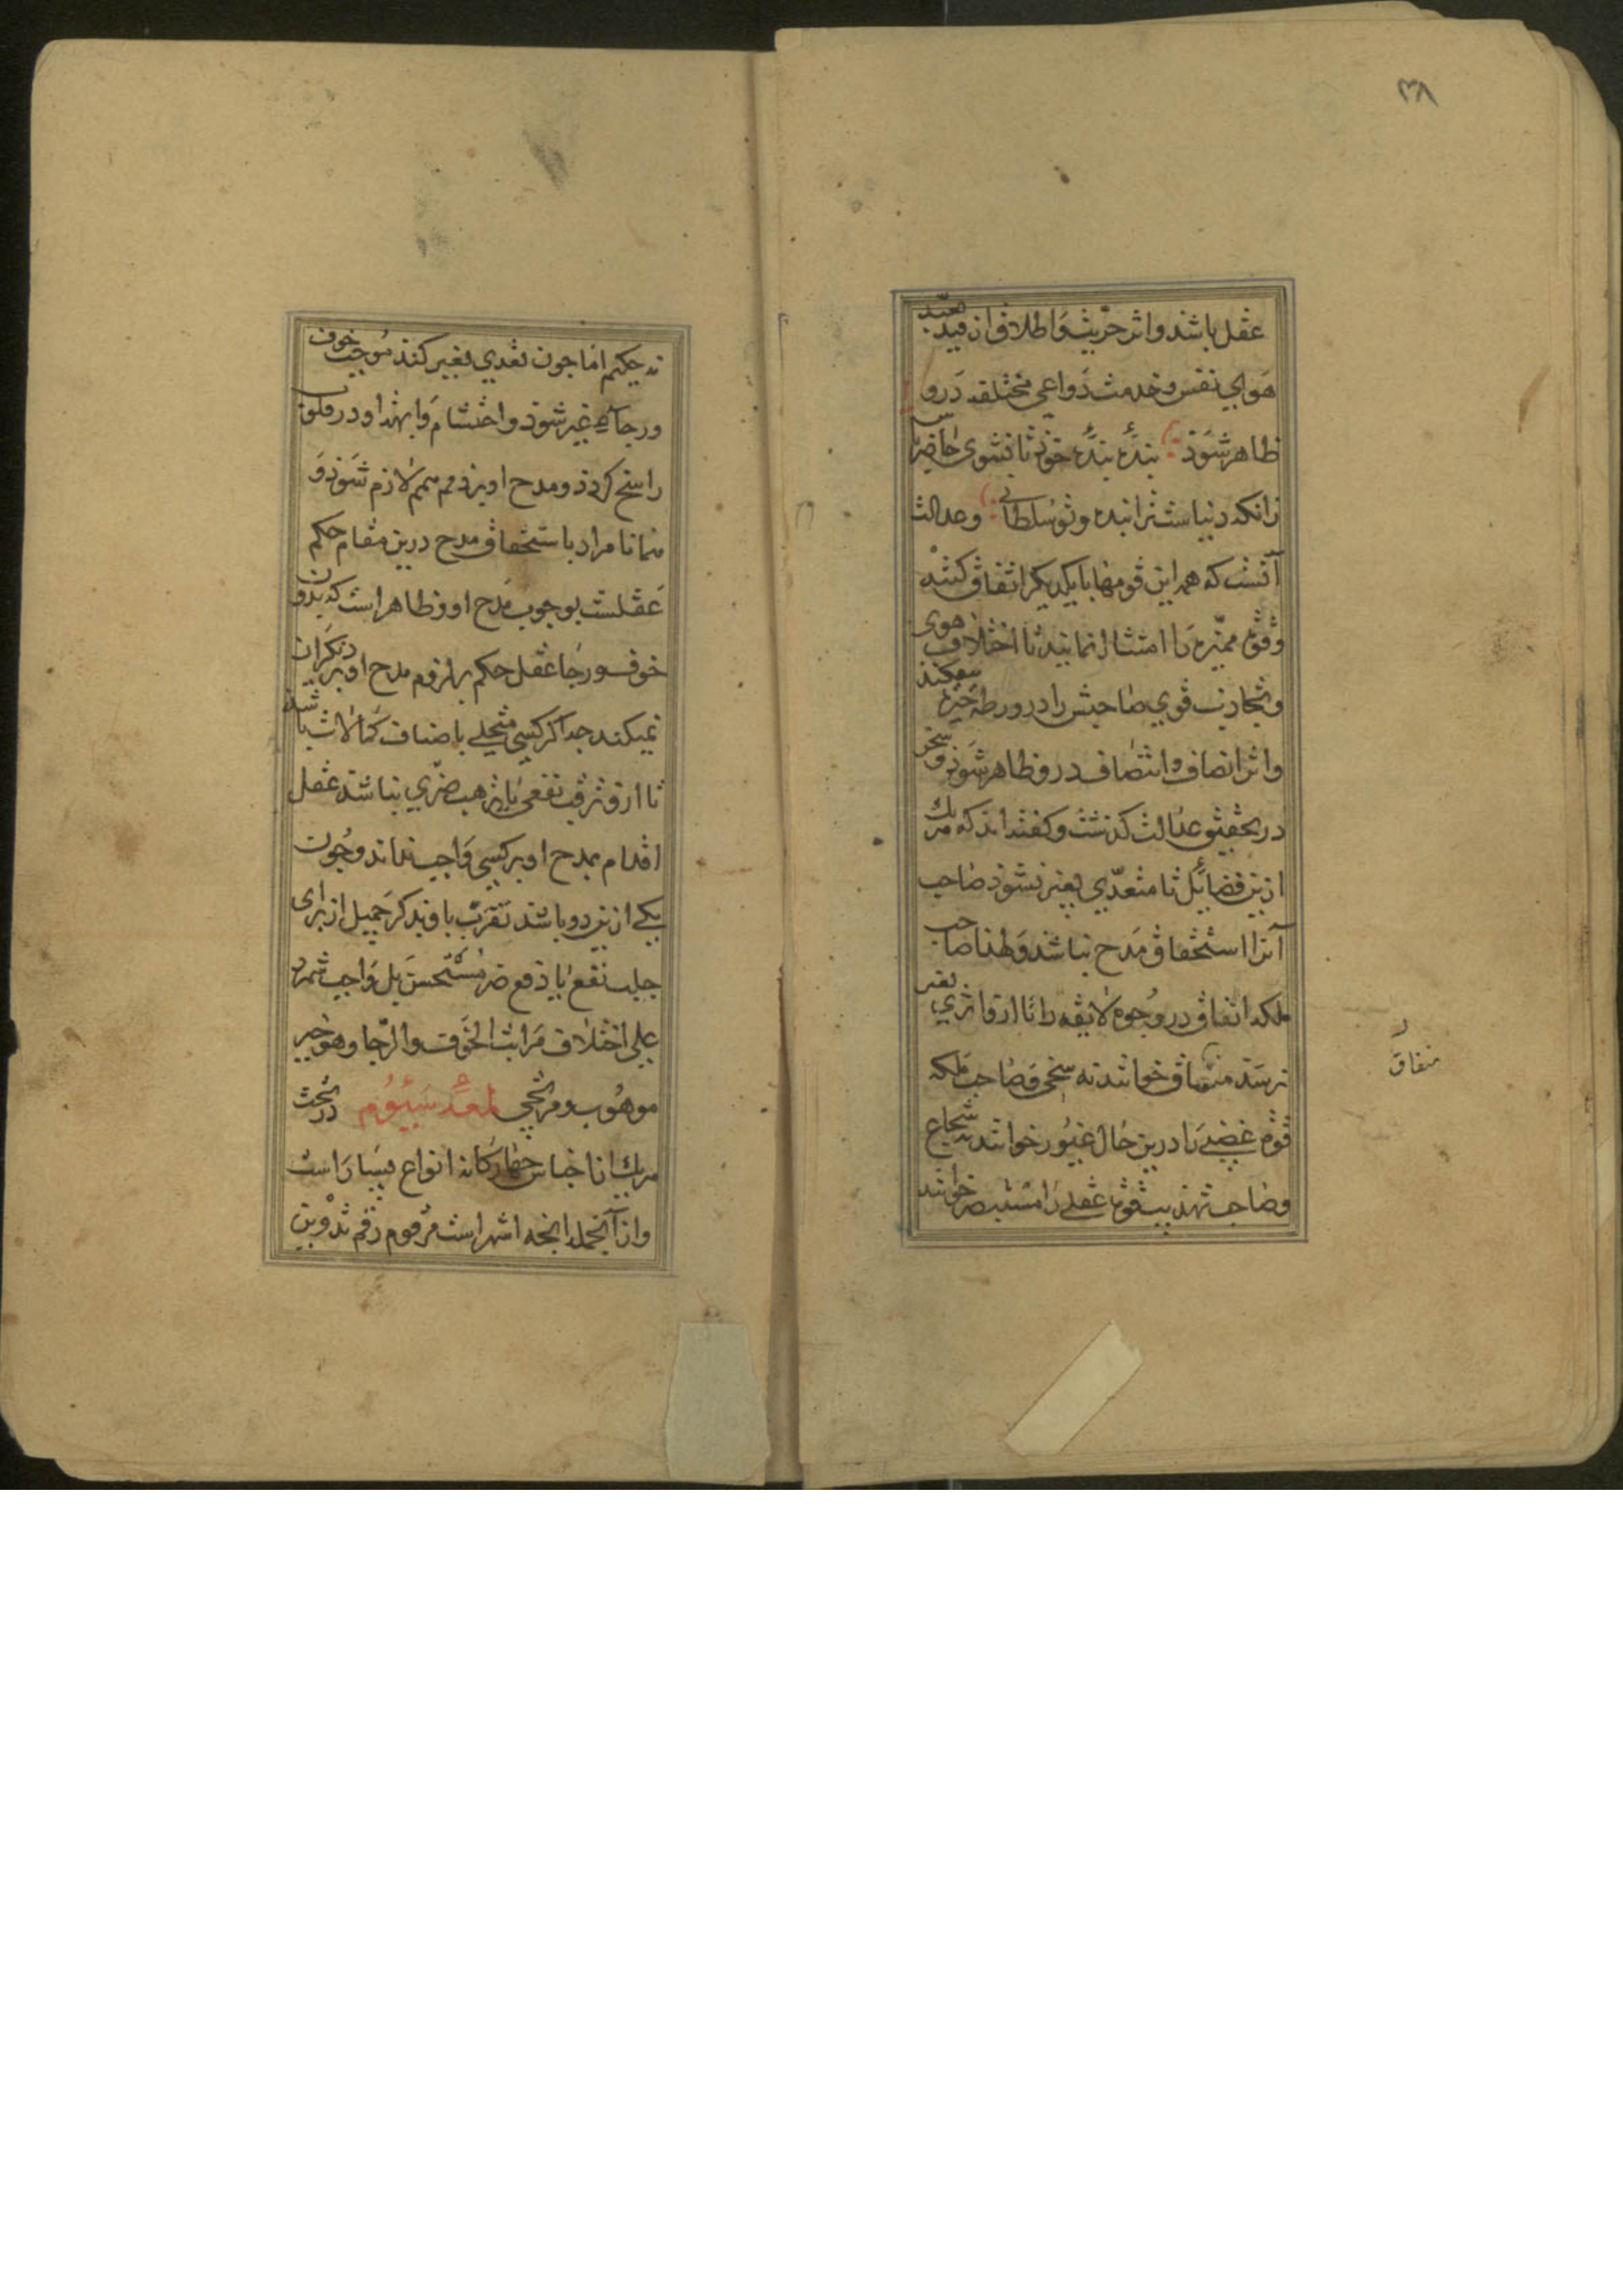 ۳۸
عقل باشد و اثر حریت و اطلاق از قید تعبد
هوای نفس و خدمت دواعی مختلفه درو
ظاهر شود بنده بنده خوذ تا نشوی حاضر
زانکه دنیاست ترا بنده و تو سلطانی و عدالت
آنست که همه این قومها با یکدیگر اتفاق کنند
وقوة ممیزه را امتثال نمایند تا اختلاف هوی
و تجاذب قوی صاحبش را در ورطه حیرة نیفکند
و اثر انصاف و انتصاف در و ظاهر شوذ و سخن
در تحقیق عدالت کذشت و کفته اند که هریك
ازین فضایل تا متعدی بغیر نشوذ صاحب
آنرا استحقاق مدح نباشد ولهذا صاحب
ملکه انفاق در وجوه لایقه را تا ازو اثری بغیر
نرسد منفاق خوانند نه سخی و صاحب ملکه
قوة غضبی را درین حال غیور خوانند نه شجاع
و صاحب تهذیب قوة عقلی را مستبصر خوانند
منفاق
نه حکیم اما جون تعدی بغیر کند موجب خوف
و رجاء غیر شوذ و احتشام و ابهت او در قلوب
راسخ کردذ و مدح او بر ذمم همم لازم شوذ و
همانا مراد باستحقاق مدح درین مقام حکم
عقلست بوجوب مدح او و ظاهر است که بدون
خوف و رجا عقل حکم بر لزوم مدح او بر دیکران
نمیکند جه اکر کسی متحلی باصناف کمالات باشد
تا ازو ترقب نفعی یا ترهب ضری نباشد عقل
اقدام بمدح او بر کسی واجب نداند و جون
یکی ازین دو باشد تقرب باو بذکر جمیل از برای
جلب نفع یا دفع ضر مستحسن بل واجب شمرد
علی اختلاف مراتب الخوف والرجا وهو خیر
موهوب و مرتجی لمعه سیوم در تحت
هریك از اجناس جهارکانه انواع بسیار است
و از آنجمله انجه اشهر است مرقوم رقم تدوین